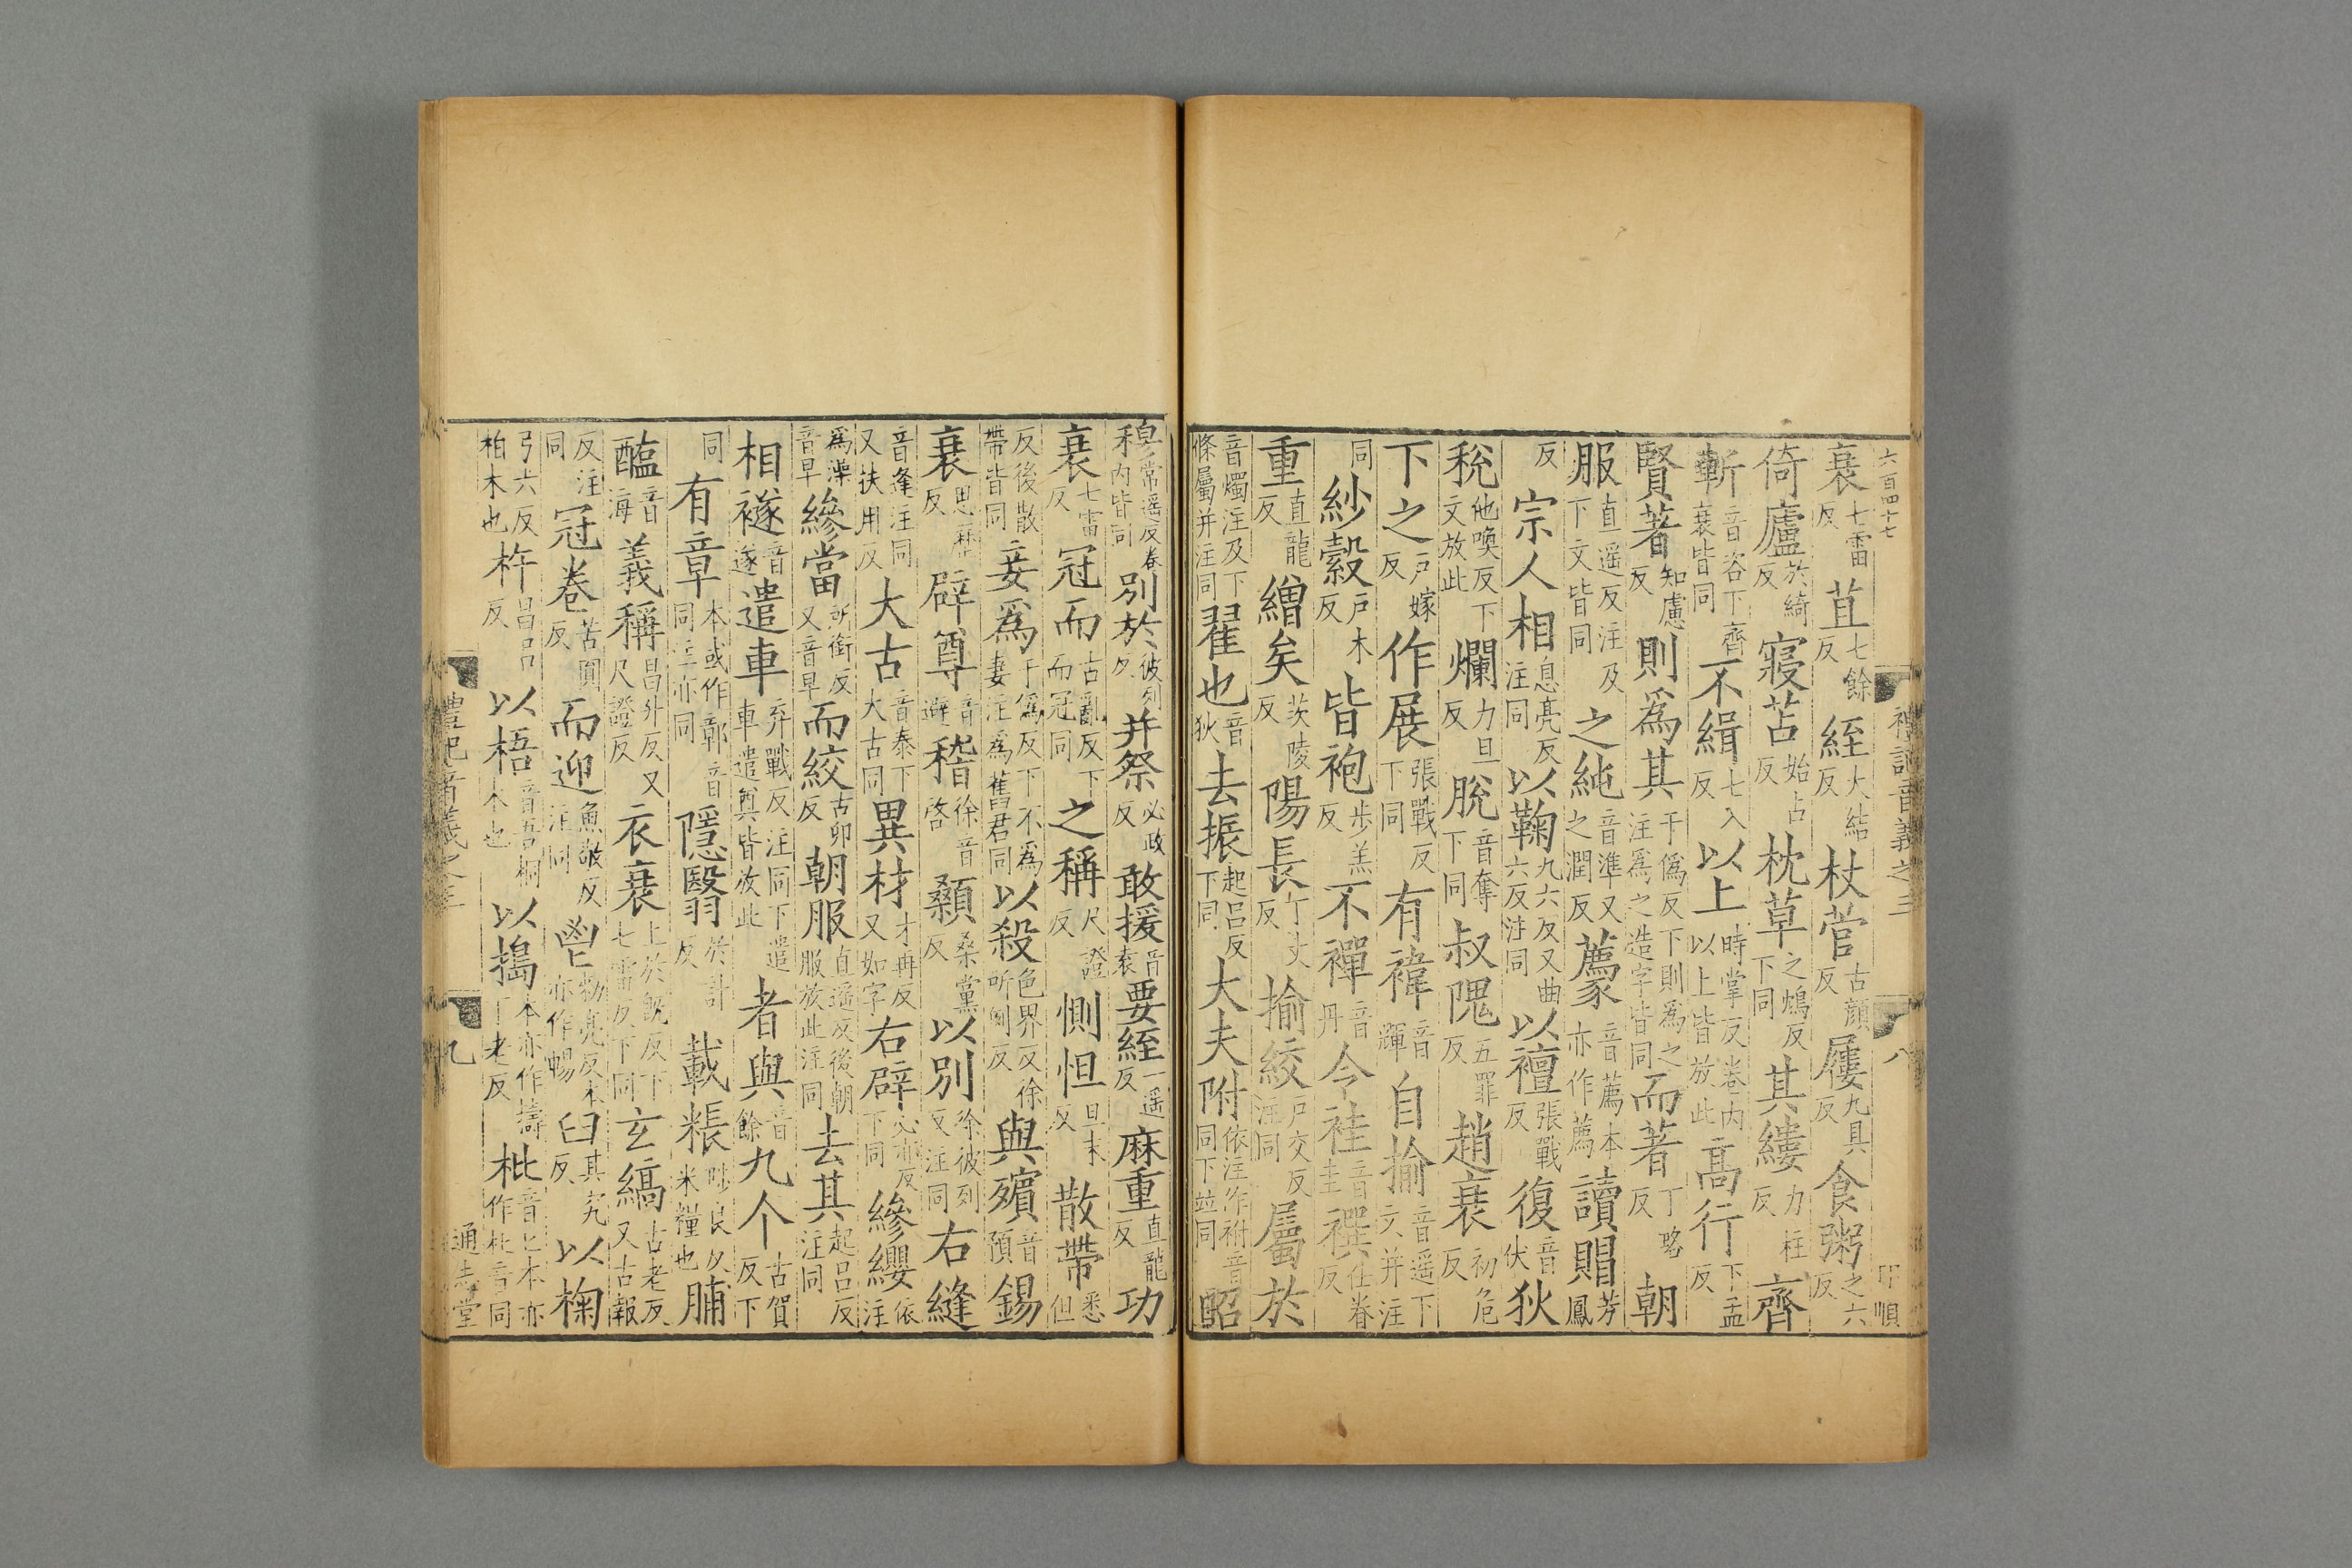 六百四十七
禮記音義之三 八
衰七雷反苴七餘反絰大結反杖菅古顔反屨九具反食粥之六反
倚廬於綺反寢苫始占反枕草之鴆反下同其縷力柱反齊
斬音咨下齊衰皆同不緝七入反以上時掌反卷内以上皆放此高行下孟反
賢著知慮反則爲其于僞反下則爲之注爲之造字皆同而著丁略反朝
服直遥反注及下文皆同之純音準又之潤反薦音薦本亦作薦讀賵芳鳳
反宗人相息亮反注同以鞠九六反又曲六反注同以襢張戰反復音伏狄
稅他喚反下文放此爛力旦反脫音奪下同叔隗五罪反趙衰初危反
下之戸嫁反作展張戰反下同有褘音輝自揄音遥下文并注
同紗縠戸木反皆袍步羔反不襌音丹今袿音圭襈仕眷反
重直龍反繒矣茨陵反陽長丁丈反揄絞戸交反注同屬於
音燭注及下條屬并注同翟也音狄去振起吕反下同大夫附依注作祔音同下並同昭
穆常遥反卷内皆同别於彼列反并祭必政反敢援音袁要絰一遥反麻重直龍反功
衰七雷反冠而古亂反下而冠同之稱尺證反惻怛旦末反散帶悉但
反後散帶皆同妾爲于僞反下不爲妻注爲舊君同以殺色界反徐所例反與殯音預錫
衰思歷反辟尊音避稽徐音啓顙桑黨反以别徐彼列反注同右縫
音逢注同又扶用反大古音泰下大古同異材才再反又如字右辟必亦反下同縿纓依注
爲澡音早縿當所銜反又音早而絞古卯反朝服直遥反後朝服放此注同去其起吕反注同
相襚音遂遣車弃戰反注同下遣車遣奠皆放此者與音餘九个古賀反下
同有章本或作鄣音同注亦同隱翳於計反載粻陟良反米糧也脯
醢音海義稱昌升反又尺證反衣衰上於既反下七雷反下同玄縞古老反又古報
反注同冠卷苦圓反而迎魚敬反注同鬯勑亮反本亦作暢臼其九反以椈
弓六反柏木也杵昌吕反以梧音吾桐木也以擣本亦作擣丁老反枇音匕本亦作朼音同
禮記音義之三 九 通志堂